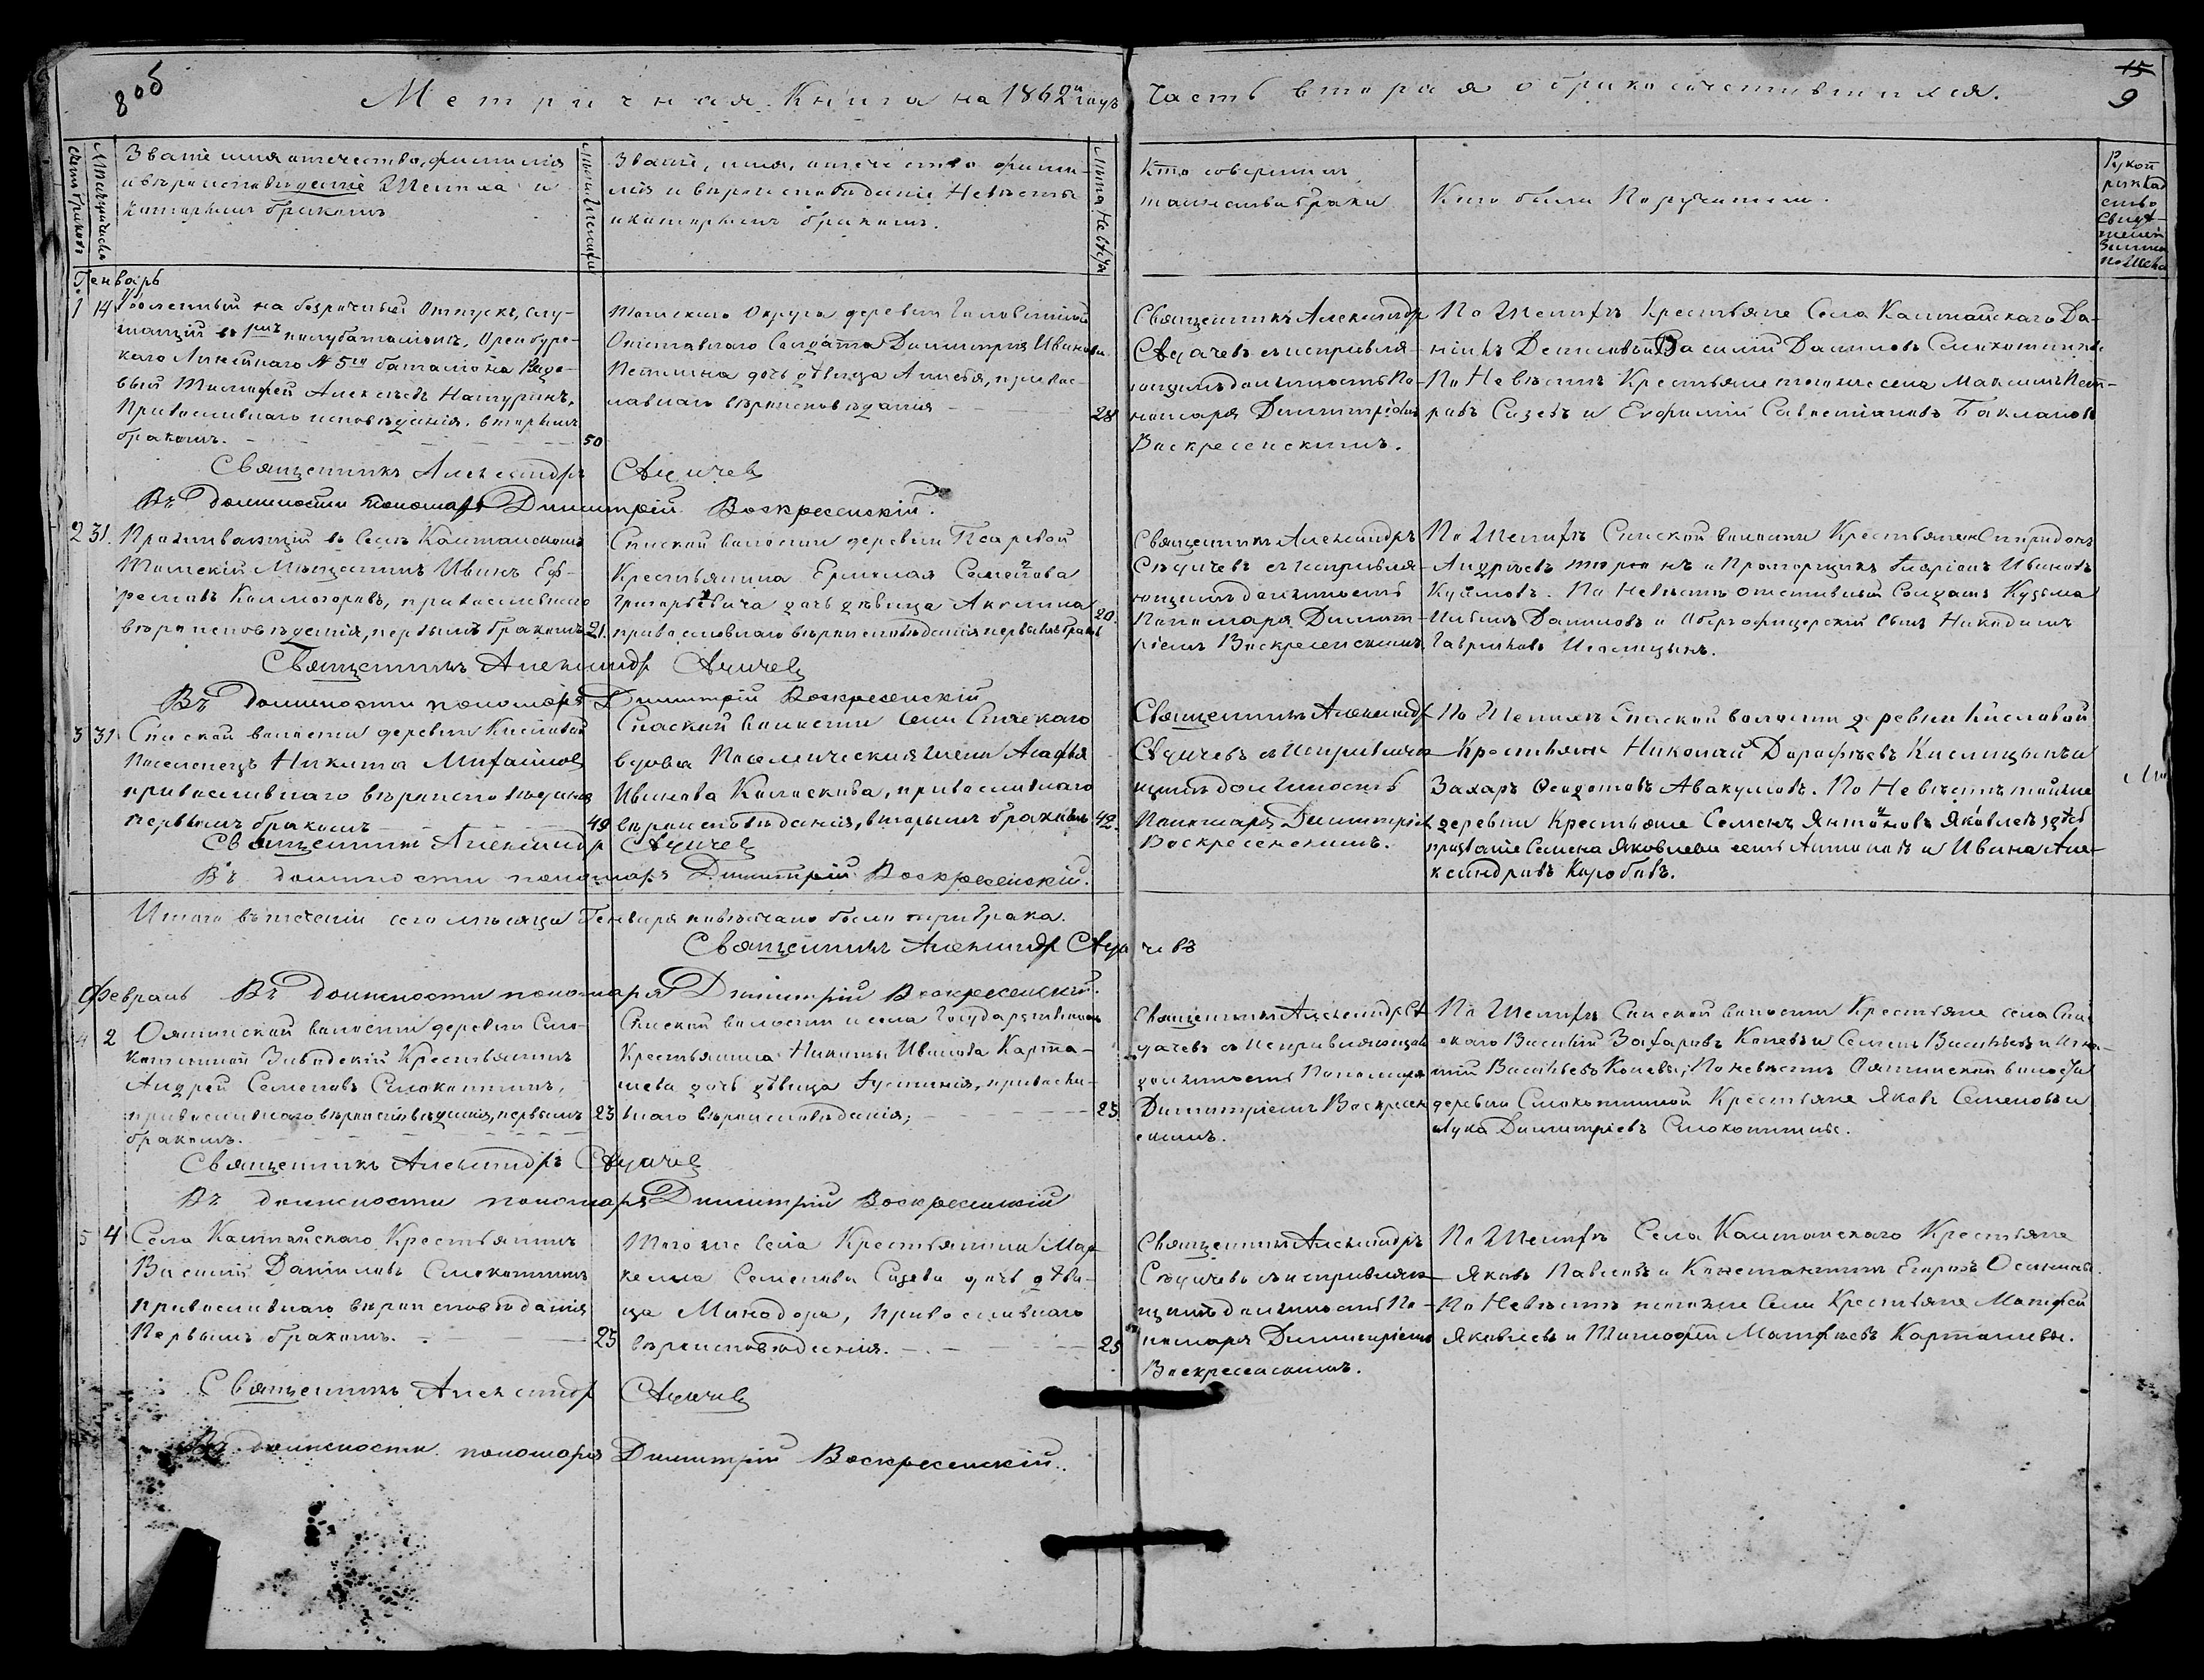 8 об
Метричная Книга на 1862й годъ Часть вторая о бракосочетавшихся.
15
9
Счетъ браковъ
Званіе имя отечество, фамилія
и вѣроисповѣданіе Жениха и
которымъ бракомъ
Лѣта Жениха
Званіе, имя, отечество фами-
лія и вѣроисповѣданіе Невѣсты
и которымъ бракомъ.
Лѣта Невѣсты
Кто совершилъ
таинство брака
Кто были Поручители.
Генварь
1 14 Уволенный на безсрочный Отпускъ, слу-
жащій въ полубаталіонѣ, Оренбург-
скаго Линейнаго № 5го баталіона Рядо-
вый Тимофей Алексѣевъ Натуринъ,
Православнаго исповѣданія. вторымъ
бракомъ. 50
Томскаго Округа деревни
Отставнаго Солдата Димитрія Иванова
дочь дѣвица православ-
лавнаго вѣроисповѣданія 28
Священникъ Александръ
Сѣдачевъ съ исправля-
ющимъ должность По-
номаря Димитріемъ
Воскресенскимъ.
По Женихѣ Крестьяне Села Каштайскаго Да-
Василій Даниловъ Смокотнины
По Невѣстѣ Крестьяне тогоже села Максимъ Пет-
ровъ Сизевъ и Евфимій Савостіановъ Баклановъ
Священникъ Александръ Сѣдачевъ
Въ должности пономаря Димитрій Воскресенскій.
2 31. Проживающій въ Селѣ Каштайскомъ
Томскій Мѣщанинъ Иванъ Еф-
ремовъ Колмогоровъ, православнаго
вѣроисповѣданія, первымъ бракомъ 21.
Спаской волости деревни Писаревой
Крестьянина Ермолая Семенова
Григорьевича дочь дѣвица Акилина
православнаго вѣроисповѣданія первымъ бракомъ 20.
Священникъ Александръ
Сѣдачевъ съ исправля-
ющимъ должность
Пономаря Димит-
ріемъ Воскресенскимъ
По Женихѣ Спаской волости Крестьянинъ Спиридонъ
Андреевъ и Прапорщикъ Иларіонъ Ивановъ
По Невѣстѣ отставный Солдатъ Кузьма
Даниловъ и Оберъофицерскій Сынъ Никодимъ
Гавриловъ
Священникъ Александръ Сѣдачевъ
Въ должности пономаря Димитрій Воскресенскій
3 31 Спаской волости деревни Кисловой
Поселенецъ Никита Михайловъ
православнаго вѣроисповѣданія
первымъ бракомъ 49
Спаской волости села Спаскаго
вдова Поселенческая жена Агафья
Иванова Колоскова, православнаго
вѣроисповѣданія, вторымъ бракомъ 42.
Священникъ Александръ
Сѣдачевъ съ исправляю-
щимъ должность
Пономаря Димитріемъ
Воскресенскимъ.
По Женихѣ Спаской волости деревни Кисловой
Крестьяне Николай Дорофѣевъ Кислицынъ и
Захаръ Федотовъ Авакумовъ. По Невѣстѣ тойже
деревни Крестьяне Семенъ Яковлевъ здѣсь
прозваніе Семена Яковлева есть Антоновъ и Иванъ Але-
ксандровъ Коробовъ.
Священникъ Александръ Сѣдачевъ
Въ должности пономаря Димитрій Воскресенскій.
Итого въ теченіи сего мѣсяца Генваря повѣнчано было три брака.
Священникъ Александръ Сѣдачевъ
Февраль Въ должности пономаря Димитрій Воскресенскій.
4 2 Ояшинской волости деревни Смо-
котниной Заводскій Крестьянинъ
Андрей Семеновъ Смокотнинъ,
православнаго вѣроисповѣданія, первымъ 23
бракомъ.
Спаской волости и села Государственнаго
Крестьянина Никиты Иванова Карта-
шева дочь дѣвица Іустинія, православ-
наго вѣроисповѣданія; 23
Священникъ Александръ Сѣ-
дачевъ съ исправляющимъ
должность Пономаря
Димитріемъ Воскресен-
скимъ.
По Женихѣ Спаской волости Крестьяне села Спа-
скаго Василій Захаровъ Коневъ и Семенъ Васильевъ и Игна-
тій Васильевъ Коневы; По невѣстѣ Ояшинской волости
деревни Смокотниной Крестьяне Яковъ Семеновъ и
Лука Димитріевъ Смокотнины.
Священникъ Александръ Сѣдачевъ
Въ должности пономаря Димитрій Воскресенскій
5 4 Села Каштайскаго Крестьянинъ
Василій Даниловъ Смокотнинъ
православнаго вѣроисповѣданія
Первымъ бракомъ. 25
Того же Села Крестьянина Мар-
келла Семенова Сизева дочь дѣви-
ца Минодора, православнаго
вѣроисповѣданія. 25
Священникъ Александръ
Сѣдачевъ съ исправляю-
щимъ должность По-
номаря Димитріемъ
Воскресенскимъ.
По Женихѣ Села Каштайскаго Крестьяне
Яковъ Павловъ и Константинъ Егоровъ Осиповы.
По Невѣстѣ тогоже Села Крестьяне Матфей
Яковлевъ и Тимофей Матфѣевъ Карташевы.
Священникъ Александръ Сѣдачевъ
Въ должности пономаря Димитрій Воскресенскій.